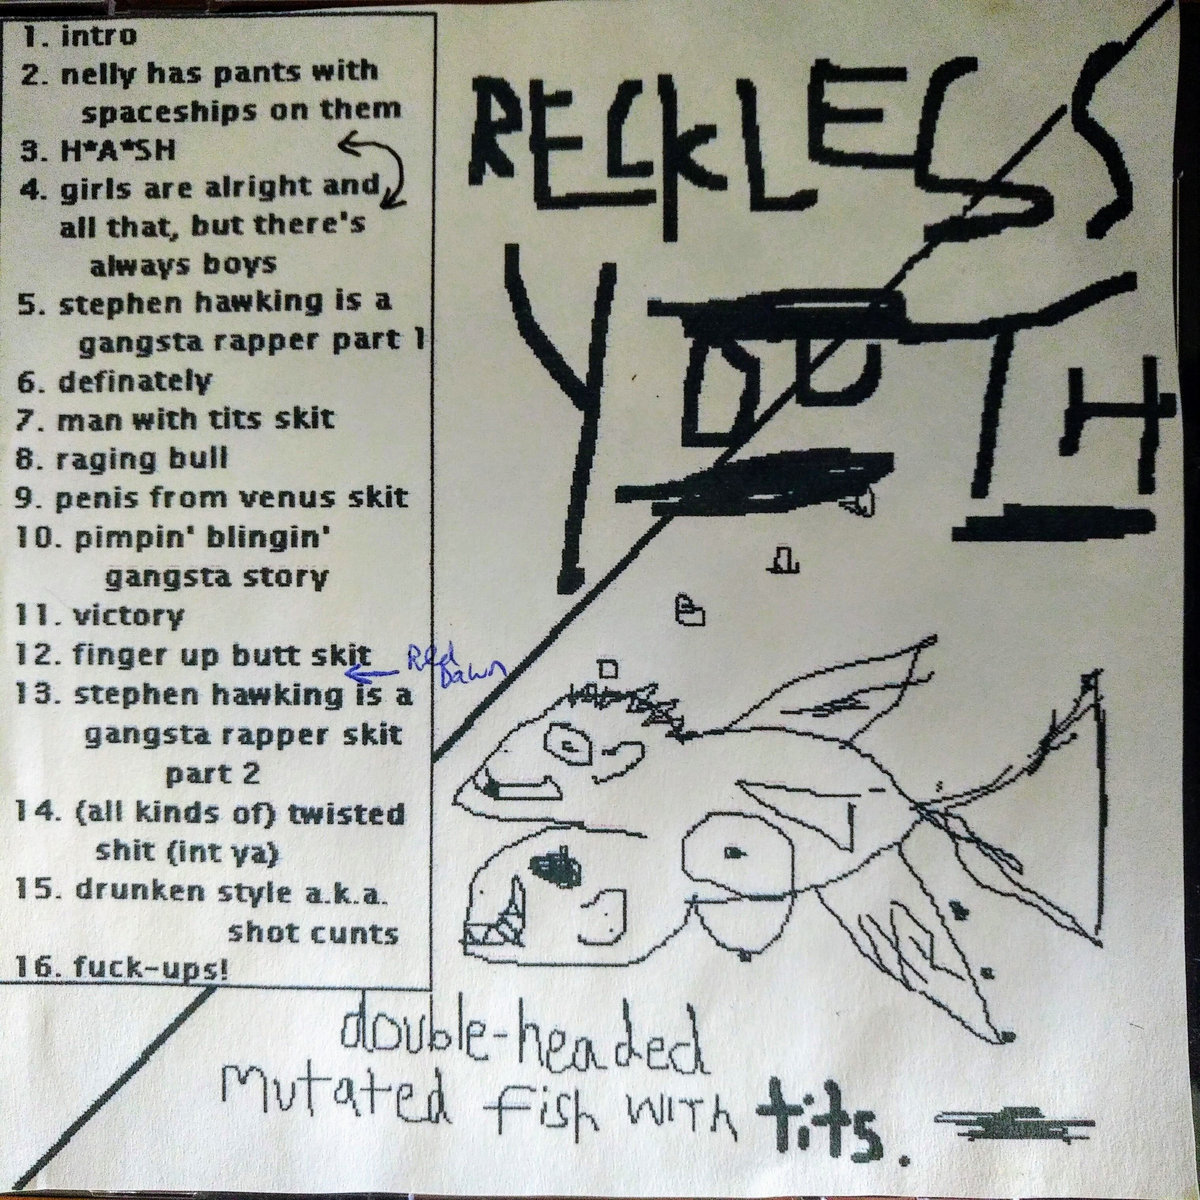 1. intro
2. nelly has pants with
spaceships on them
3. H*A*SH
4. girls are alright and
all that, but there's
always boys
5. stephen hawking is a
gangsta rapper part 1
6. definately
7. man with tits skit
8. raging bull
9. penis from venus skit
10. pimpin' blingin'
gangsta story
11. victory
12. finger up butt skit
Red
Dawn
13. stephen hawking is a
gangsta rapper skit
part 2
14. (all kinds of) twisted
shit (int ya)
15. drunken style a.k.a.
shot cunts
16. fuck-ups!
RECKLESS
YOUTH
double-headed
mutated fish with tits.